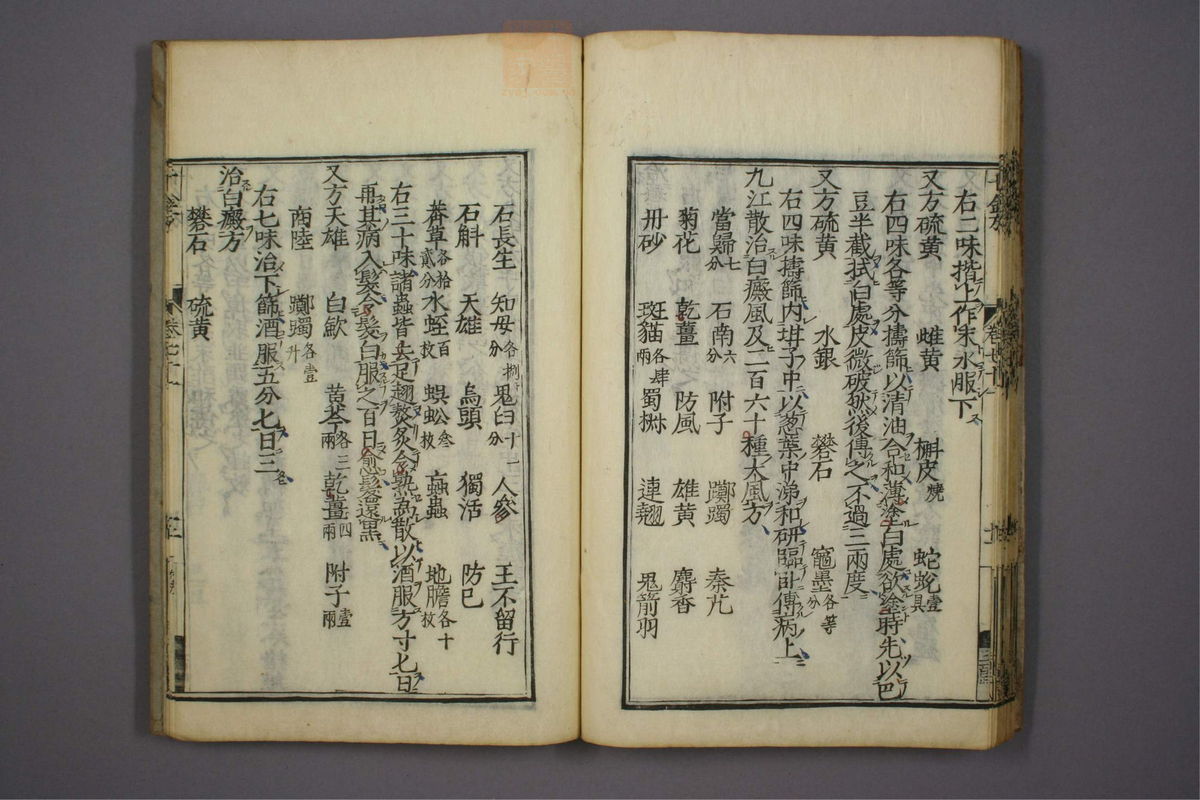 右二味揩上作末水服下
又方硫黄 雌黄 槲皮燒 蛇蛻壹具
右四味各等分擣篩以清油合和薄塗白處欲塗時先以巴
豆半截拭白處皮微破然後傅之不過三兩度
又方硫黄 水銀 礬石 竈墨各等分
右四味擣篩内坩子中以葱葉中涕和研臨卧傅病上
九江散治白癜風及二百六十種大風方
當歸七分 石南六分 附子 躑躅 秦艽
菊花 乾薑 防風 雄黄 麝香
丹砂 斑猫各肆兩 蜀椒 連翹 鬼箭羽
石長生 知母各捌分 鬼臼十一分 人參 王不留行
石斛 天雄 烏頭 獨活 防己
莽草各拾貳分 水蛭百枚 蜈蚣叁枚 蝱蟲 地膽各十枚
右三十味諸蟲皆去足翅熬炙令熟爲散以酒服方寸匕日
再其病入髮令髮白服之百日愈髮還黒
又方天雄 白歛 黄芩各三兩 乾薑四兩 附子壹兩
商陸 躑躅各壹升
右七味治下篩酒服五分匕日三
治白癜方
礬石 硫黄